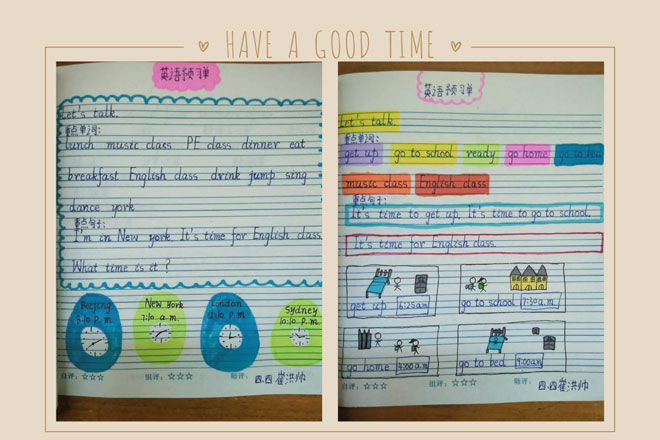 HAVE A GOOD TIME
英语预习单
Let's talk.
重点单词:
lunch music class PE class dinner eat
breakfast English class drink jump sing
dance york
重点句子:
I'm in New york. It's time for English class
What time is it ?
Beijing
p. m.
New York
7:10 a. m.
London
12:10 p. m.
Sydney
10:10 p. m.
自评:☆☆☆ 组评:☆☆☆ 师评:
四.四崔洪帅
英语预习单
Let's talk.
重点单词:
get up go to school ready go home go to bed
music class English class
重点句子:
It's time to get up. It's time to go to school.
It's time for English class.
get up 6:25a.m
go to school 7:30a.m.
go home 4:00a.m
go to bed 9:00a.m
自评:☆☆☆ 组评:☆☆☆ 师评:
四.四崔洪帅